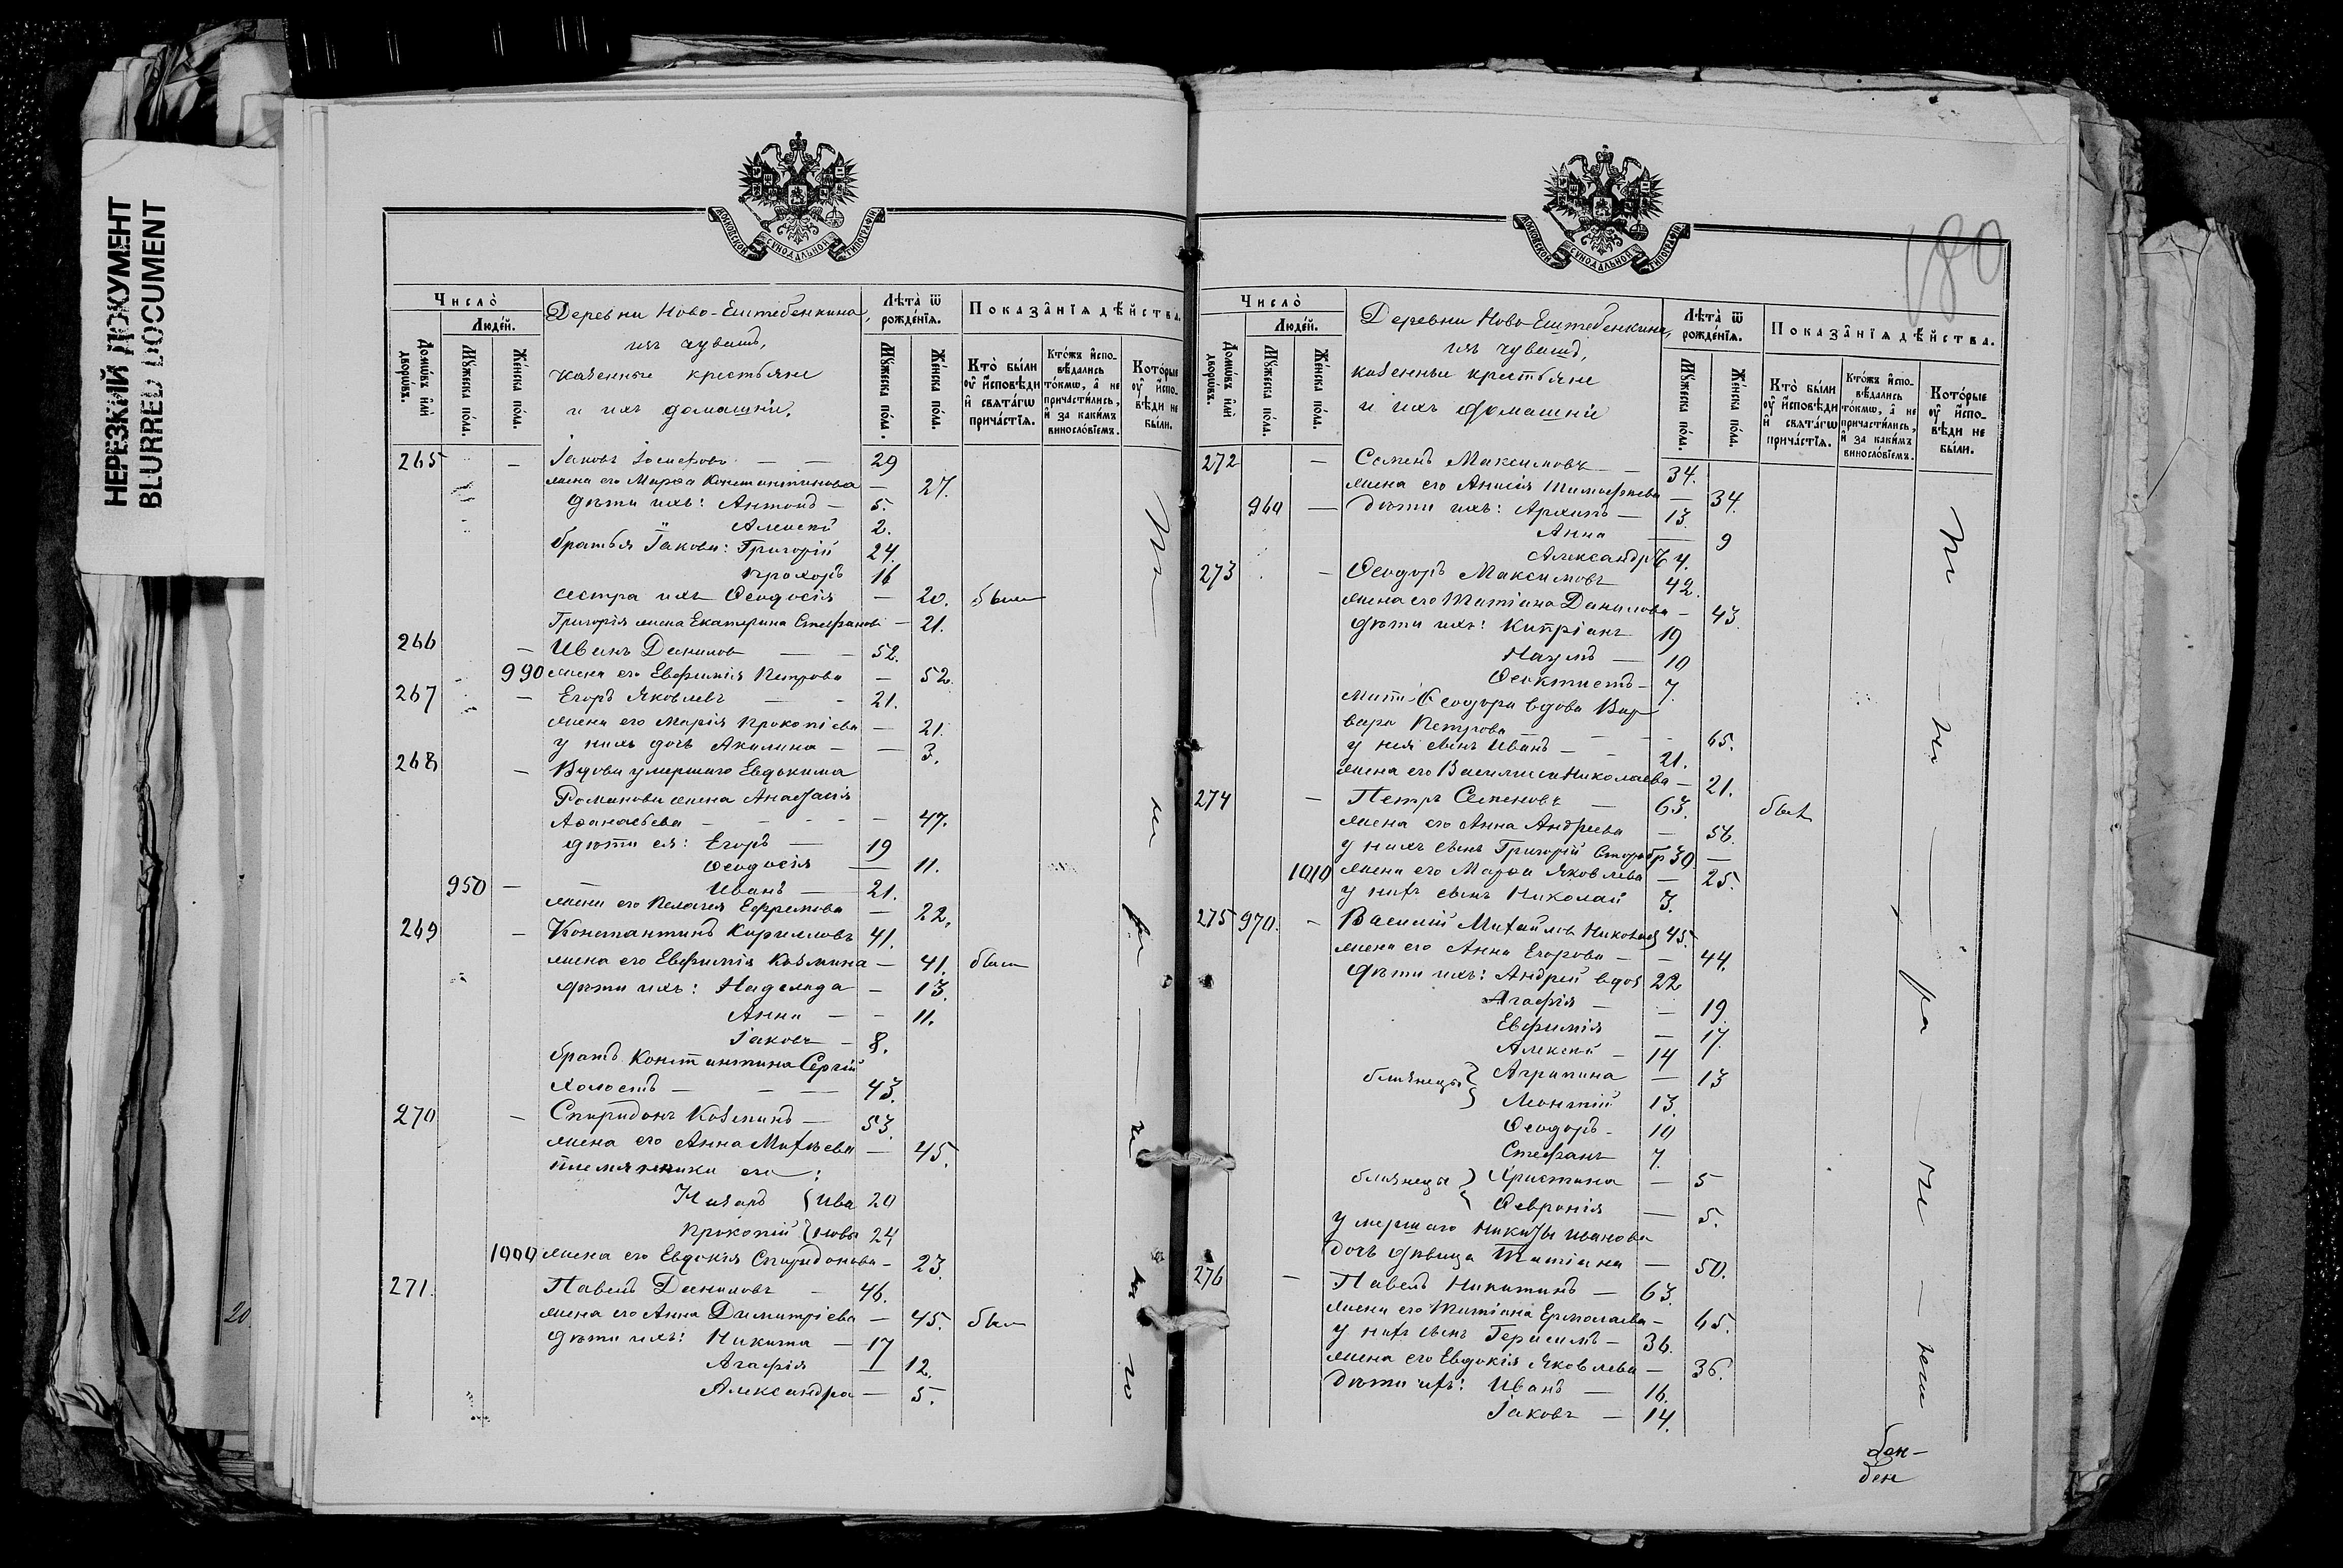 НЕРЕЗКИЙ ДОКУМЕНТ
BLURRED DOCUMENT
20
МОСКОВСКОЙ СѴНОДАЛЬНОЙ ТИПОГРАФІИ
Число̀
Людей.
Домо́въ и҆лѝ дворѡ́въ.
Мꙋ́жеска по́ла.
Же́нска по́ла.
Деревни Ново-Ештебенкина,
изъ чувашъ,
казенные крестьяне
и ихъ домашніи.
Лѣ́та ѿ рожде́нїѧ.
Мꙋ́жеска по́ла.
Же́нска по́ла.
Показа̂нїѧ дѣ́йства.
Кто̀ бы́ли оу҆ и҆сповѣди и҆ свѧта́гѡ прича́стїѧ.
Кто́жъ и҆спо-вѣ́дались то́кмѡ, а҆ не причасти́лись, и҆ за каки́мъ виносло́вїемъ.
Кото́рые оу҆ и҆спо-вѣди не бы́ли.
265 — Іаковъ Іосифовъ — 29
жена его Марѳа Константинова — 27.
дѣти ихъ: Антоній — 5.
Алексѣй 2.
братья Іакова: Григорій 24.
Прохоръ 16
сестра ихъ Ѳеодосія — 20. были
Григорія жена Екатерина Стефанов — 21.
266 — Иванъ Даниловъ — 52.
990 жена его Евфимія Петрова — 52.
267 — Егоръ Яковлевъ — 21.
жена его Марія Прокопіева — 21.
у нихъ дочь Акилина — 3.
268 — Вдова умершаго Евдокима
Романова жена Анастасія
Аѳанасьева — 47.
дѣти ея: Егоръ — 19
Ѳеодосія — 11.
950 — Иванъ — 21.
жена его Пелагея Ефремова — 22.
269 — Константинъ Кирилловъ 41.
жена его Евфимія Козмина — 41. были
дѣти ихъ: Надежда — 13.
Анна — 11.
Іаковъ — 8.
братъ Константина Сергій
холостъ — 43.
270 — Спиридонъ Козминъ — 53.
жена его Анна Матѳѣева — 45.
племянники его:
Назаръ { Ива 20
Прокопій } новы 24
1000 жена его Евдокія Спиридонова — 23
271. Павелъ Даниловъ — 46.
жена его Анна Димитріева — 45. были
дѣти ихъ: Никита — 17
Агафія — 12.
Александра — 5.
180
МОСКОВСКОЙ СѴНОДАЛЬНОЙ ТИПОГРАФІИ
Число̀
Людей.
Домо́въ и҆лѝ дворѡ́въ.
Мꙋ́жеска по́ла.
Же́нска по́ла.
Деревни Ново-Ештебенкина,
изъ чувашъ,
казенные крестьяне
и ихъ домашніи
Лѣ́та ѿ рожде́нїѧ.
Мꙋ́жеска по́ла.
Же́нска по́ла.
Показа̂нїѧ дѣ́йства.
Кто̀ бы́ли оу҆ и҆сповѣди и҆ свѧта́гѡ прича́стїѧ.
Кто́жъ и҆спо-вѣ́дались то́кмѡ, а҆ не причасти́лись, и҆ за каки́мъ виносло́вїемъ.
Кото́рые оу҆ и҆спо-вѣди не бы́ли.
272 — Семенъ Максимовъ — 34.
жена его Анисія Тимофеева — 34.
960 — дѣти ихъ: Архипъ — 13.
Анна — 9
Александръ 4.
273 — Ѳеодоръ Максимовъ 42.
жена его Татіана Данилова — 43.
дѣти ихъ: Кипріанъ 19
Наумъ — 10
Ѳеоктистъ — 7.
мать Ѳеодора вдова Вар
вара Петрова — 65.
у нея сынъ Иванъ — 21.
жена его Василиса Николаева — 21.
274 — Петръ Семеновъ — 63. былъ
жена его Анна Андреева — 56.
у нихъ сынъ Григорій 30 —
1010 жена его Марѳа Яковлева — 25.
у нихъ сынъ Николай 3.
275 970. — Василій Михайловъ 45.
жена его Анна Егорова — 44.
дѣти ихъ: Андрей вдов 22
Агафія — 19
Евфимія — 17.
Алексѣй — 14
близнецы } Агрипина — 13
Леонтій 13.
Ѳеодоръ — 10
Стефанъ 7.
близнецы } Христина — 5
Ѳевронія — 5.
умершаго Никиты Иванова
дочь дѣвица Татіана — 50.
276 — Павелъ Никитинъ — 63.
жена его Татіана Ермолаева — 65.
у нихъ сынъ Герасимъ — 36.
жена его Евдокія Яковлева — 36.
дѣти ихъ: Иванъ — 16.
Іаковъ — 14.